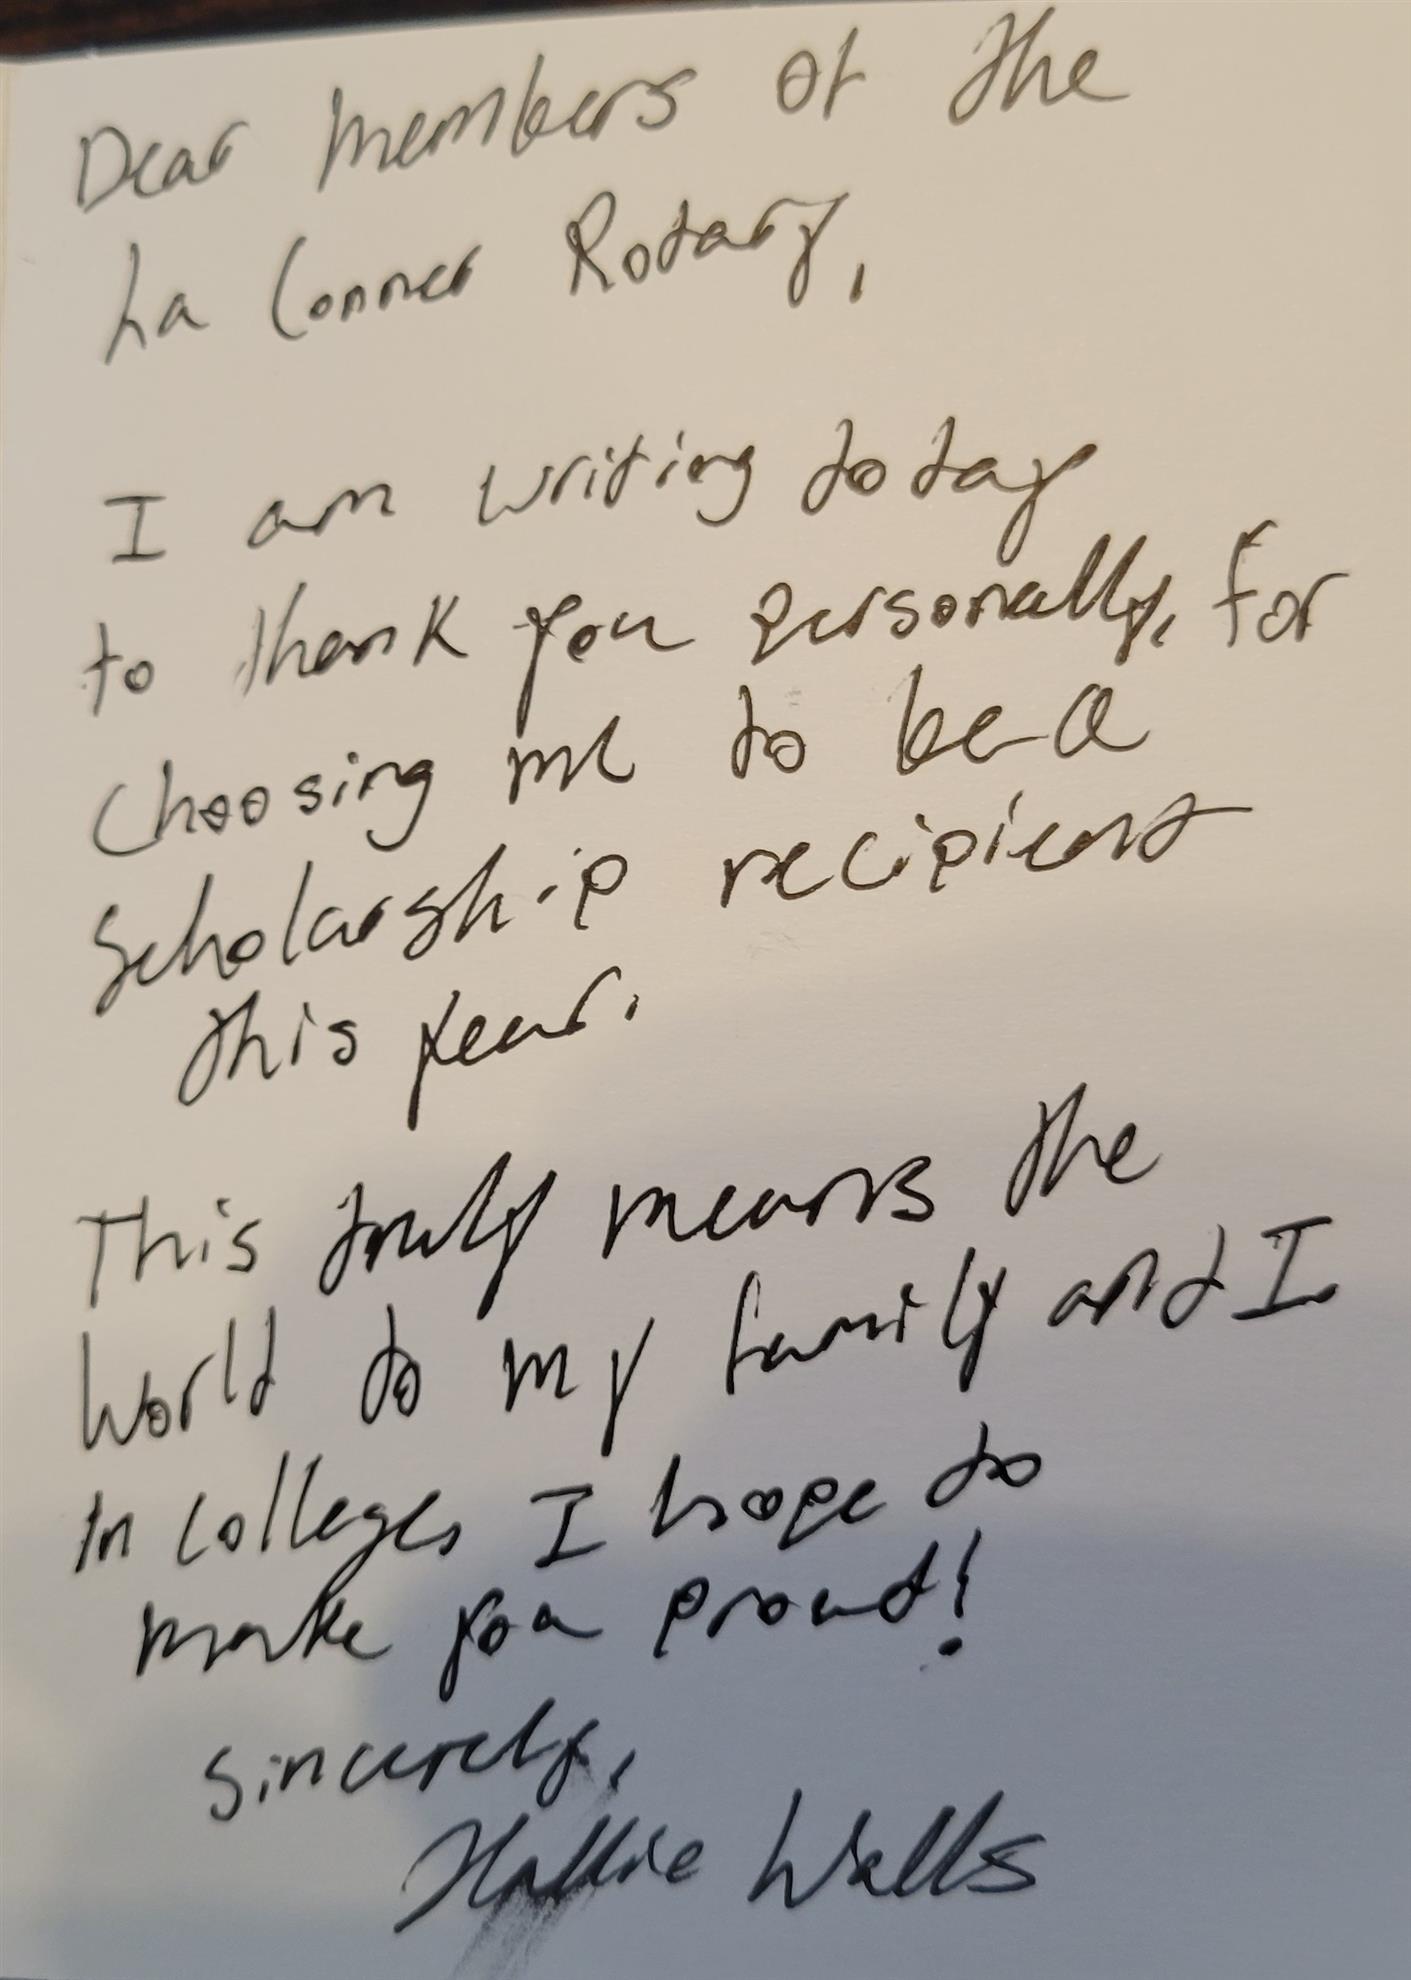 Dear members of the
La Conner Rotary,
I am writing today
to thank you personally, for
Choosing me to be a
Scholarship recipient
this year.
This truly means the
World to my family and I.
In college, I hope to
make you proud!
Sincerely,
Hallie Walls